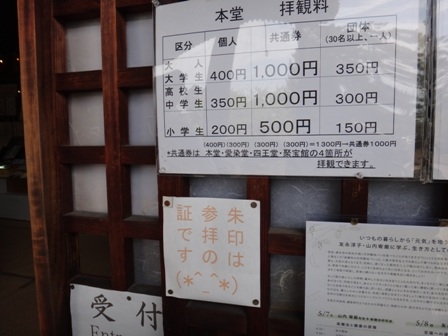 本堂　拝観料
区分 個人 共通券 団体
(30名以上、一人)
大人
大学生 400円 1,000円 350円
高校生
中学生 350円 1,000円 300円
小学生 200円 500円 150円
(400円)(300円)(300円)(300円)=1300円→共通券1000円
*共通券は 本堂・愛染堂・四王堂・聚宝館の4箇所が
拝観できます。
朱印は
参拝の
証です
(*^_^*)
受付
いつもの暮らしから「元気」を